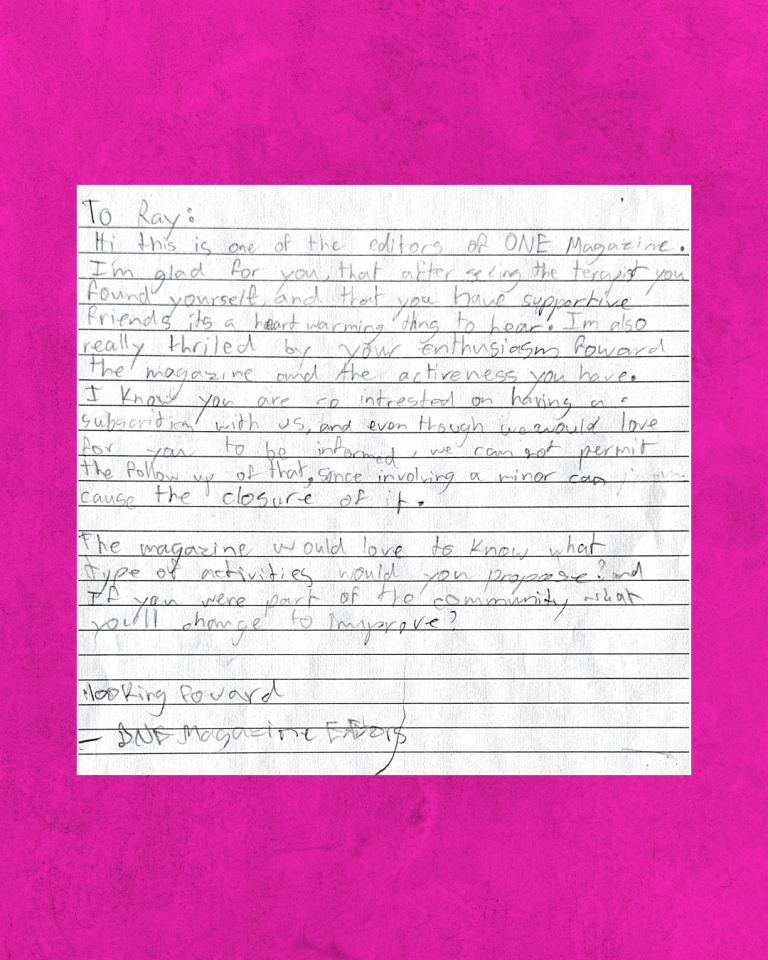 To Ray:
Hi this is one of the editors of ONE Magazine.
I'm glad for you, that after seeing the terapist you
found yourself, and that you have supportive
friends its a heart warming thing to hear. Im also
really thriled by your enthusiasm foward
the magazine and the activeness you have.
I know you are so intrested on having a
subscrition with us, and even though we would love
for you to be informed, we can not permit
the follow up of that, since involving a minor can
cause the closure of it.
The magazine would love to know what
type of activities would you propose? and
If you were part of the community what
you'll change to improve?
looking foward
- ONE Magazine Editors